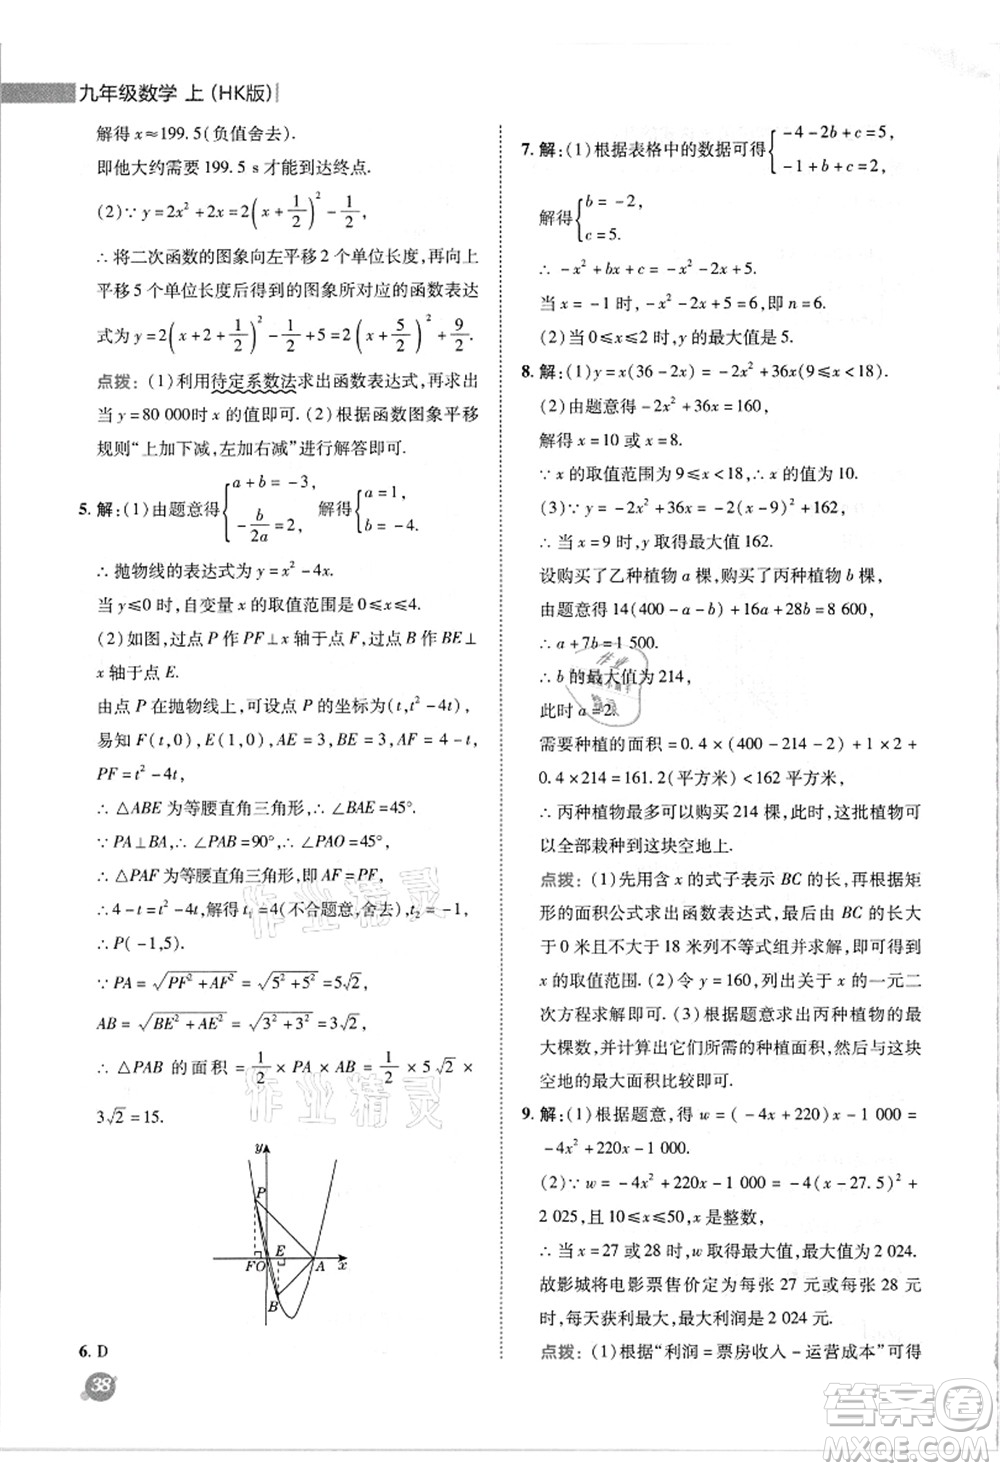 九年级数学 上(HK版)
解得 x≈199.5(负值舍去).
即他大约需要 199.5 s 才能到达终点.
(2)∵ y=2x²+2x=2(x+1/2)²-1/2,
∴ 将二次函数的图象向左平移 2 个单位长度,再向上
平移 5 个单位长度后得到的图象所对应的函数表达
式为 y=2(x+2+1/2)²-1/2+5=2(x+5/2)²+9/2.
点拨: (1)利用待定系数法求出函数表达式,再求出
当 y=80 000时 x 的值即可. (2)根据函数图象平移
规则“上加下减,左加右减”进行解答即可.
5. 解:(1)由题意得{a+b=-3, -b/2a=2, 解得{a=1, b=-4.
∴ 抛物线的表达式为 y=x²-4x.
当 y≤0 时,自变量 x 的取值范围是 0≤x≤4.
(2)如图,过点 P 作 PF⊥x 轴于点 F,过点 B 作 BE⊥
x 轴于点 E.
由点 P 在抛物线上,可设点 P 的坐标为(t,t²-4t),
易知 F(t,0),E(1,0),AE=3,BE=3,AF=4-t,
PF=t²-4t.
∴ △ABE 为等腰直角三角形,∴ ∠BAE=45°.
∵ PA⊥AB,∴ ∠PAB=90°,∴ ∠PAO=45°.
∴ △PAF 为等腰直角三角形,∴ AF=PF,
∴ 4-t=t²-4t,解得 t₁=4(不合题意,舍去),t₂=-1,
∴ P(-1,5).
∵ PA=√(PF²+AF²)=√(5²+5²)=5√2,
AB=√(BE²+AE²)=√(3²+3²)=3√2,
∴ △PAB 的面积=1/2×PA×AB=1/2×5√2×
3√2=15.
y
P
E
F O A x
B
6. D
38
7. 解:(1)根据表格中的数据可得{-4-2b+c=5, -1+b+c=2,
解得{b=-2, c=5.
∴ -x²+bx+c=-x²-2x+5.
当 x=-1 时,-x²-2x+5=6,即 n=6.
(2)当 0≤x≤2 时,y 的最大值是 5.
8. 解:(1)y=x(36-2x)=-2x²+36x(9≤x<18).
(2)由题意得-2x²+36x=160,
解得 x=10 或 x=8.
∵ x 的取值范围为 9≤x<18,∴ x 的值为 10.
(3)∵ y=-2x²+36x=-2(x-9)²+162,
∴ 当 x=9 时,y 取得最大值 162.
设购买了乙种植物 a 棵,购买了丙种植物 b 棵,
由题意得 14(400-a-b)+16a+28b=8 600,
∴ a+7b=1 500.
∴ b 的最大值为 214,
此时 a=2.
需要种植的面积=0.4×(400-214-2)+1×2+
0.4×214=161.2(平方米)<162 平方米,
∴ 丙种植物最多可以购买 214 棵,此时,这批植物可以
全部栽种到这块空地上.
点拨: (1)先用含 x 的式子表示 BC 的长,再根据矩
形的面积公式求出函数表达式,最后由 BC 的长大
于 0 米且不大于 18 米列不等式组并求解,即可得到 x
的取值范围. (2)令 y=160,列出关于 x 的一元二
次方程求解即可. (3)根据题意求出丙种植物的最
大棵数,并计算出它们所需的种植面积,再与这块
空地的最大面积比较即可.
9. 解:(1)根据题意,得 w=(-4x+220)x-1 000=
-4x²+220x-1 000.
(2)∵ w=-4x²+220x-1 000=-4(x-27.5)²+
2 025,且 10≤x≤50,x 是整数,
∴ 当 x=27 或 28 时,w 取得最大值,最大值为 2 024.
故影城将电影票售价定为每张 27 元或每张 28 元
时,每天获利最大,最大利润是 2 024 元.
点拨: (1)根据“利润=票房收入-运营成本”可得
作业精灵
作业精灵
答案圈
MXQE.COM